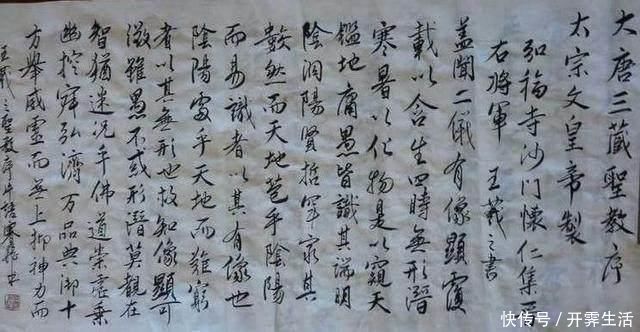 大唐三藏聖教序
太宗文皇帝製
弘福寺沙門懷仁集
右將軍王羲之書
蓋聞二儀有像顯覆
載以含生四時無形潛
寒暑以化物是以窺天
鑑地庸愚皆識其端明
陰洞陽賢哲罕窮其
數然而天地苞乎陰陽
而易識者以其有像也
陰陽處乎天地而難窮
者以其無形也故知像顯可
徵雖愚不或形潛莫覩在
智猶迷况乎佛道崇虛乘
幽控寂弘濟万品典御十
方舉威靈而無上抑神力而
王羲之聖教序
快传号/开霁生活